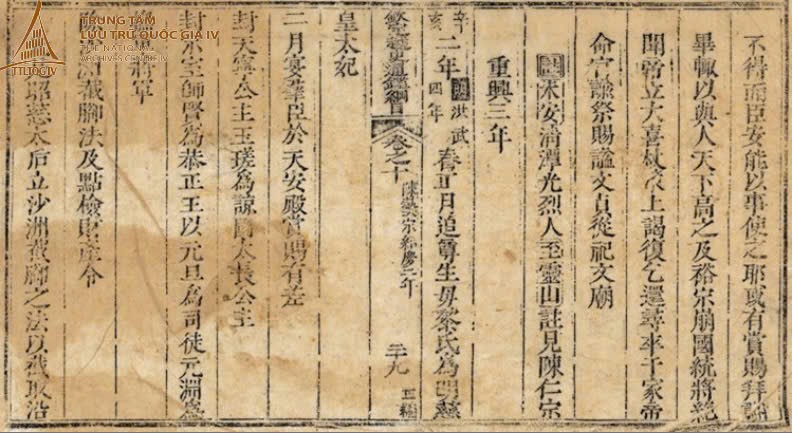 不得而臣安能以事使之耶或有賞賜拜辭
畢輒以與人天下高之及裕宗崩國統將絕
聞帝立大喜杖衣上謁復乞還尋卒于家帝
命官諭祭賜諡文貞從祀文廟
永安清潭光烈人至靈山註見陳仁宗
重興三年
辛亥二年明洪武四年春正月追尊生母黎氏為明慈
越史通鑑綱目 卷之十 陳藝宗紹慶二年 正編
皇太妃
二月宴羣臣於天安殿賞賜有差
封天寧公主玉瑳為諒國太長公主
封宗室師賢為恭正王以元旦為司徒元淵為
將軍
除沙洲截腳法及點檢財產令
昭慈太后立沙洲截腳之法以截取沿
TRUNG TÂM
LƯU TRỮ QUỐC GIA IV
THE NATIONAL
ARCHIVES CENTRE IV
TTLTQG IV